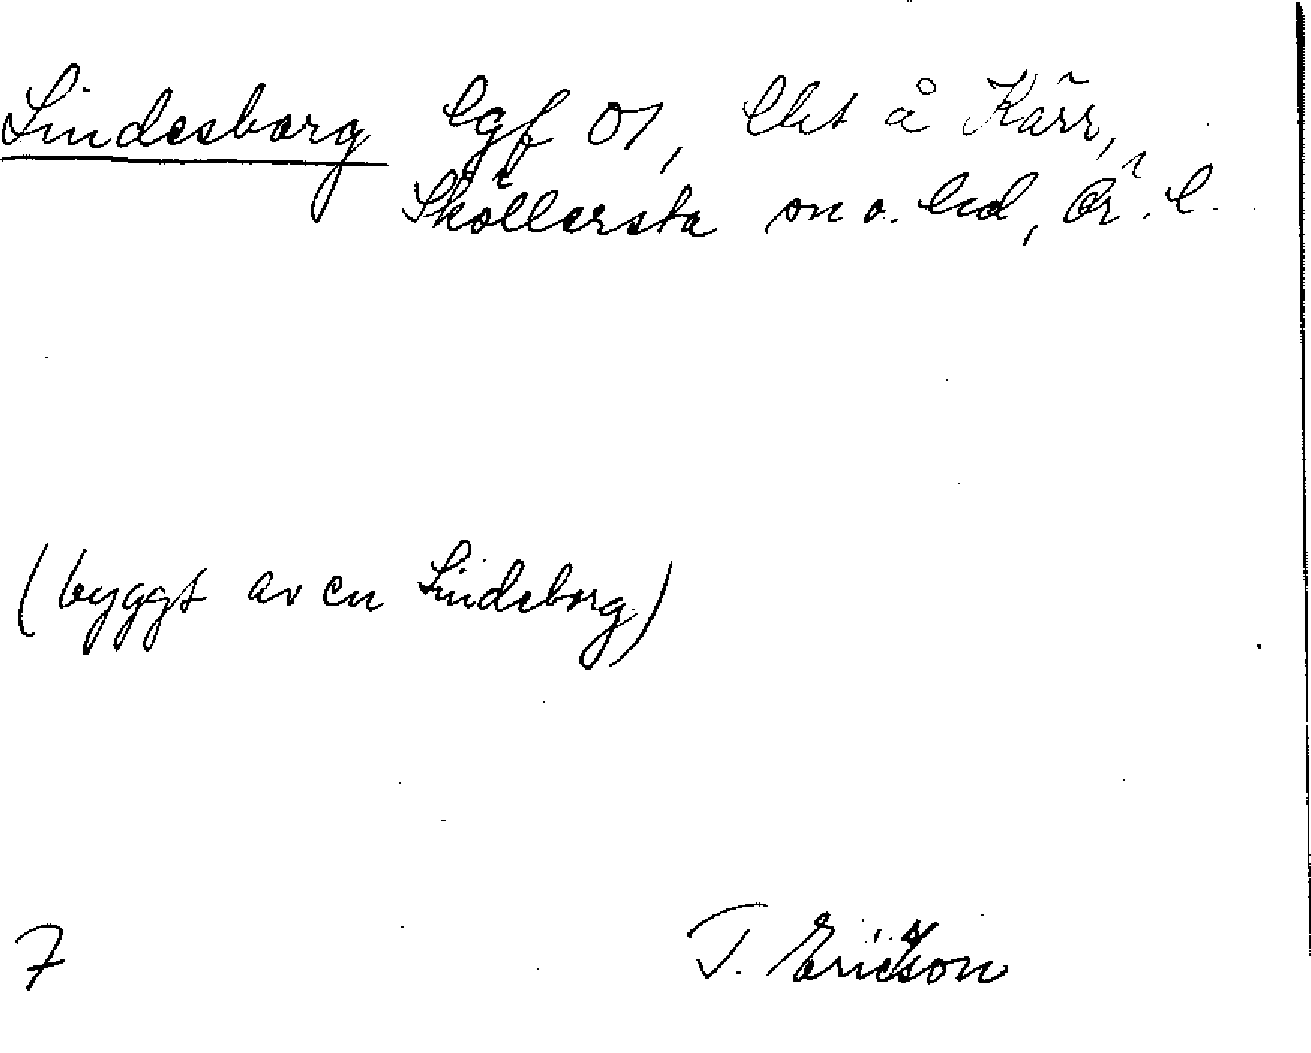 Lindesborg lgf 01, lht å Kärr,
Sköllersta sn o. hd, Ör. l.
(byggt av en Lindeborg)
7 T. Ericson